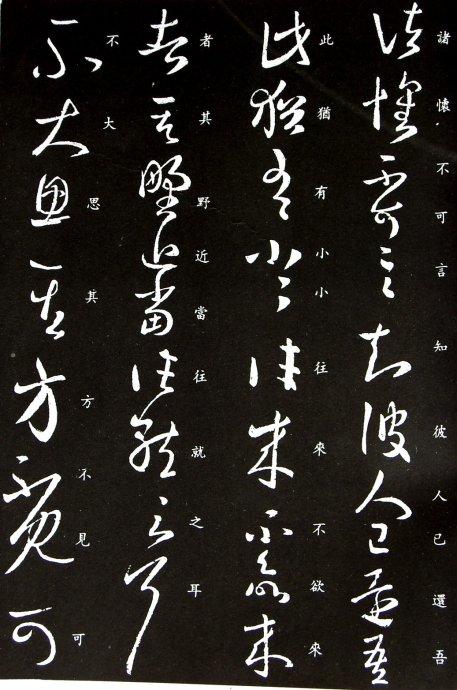 諸懷不可言知彼人已還吾
此猶有小小往來不欲來
者其野近當往就之耳
不大思其方不見可